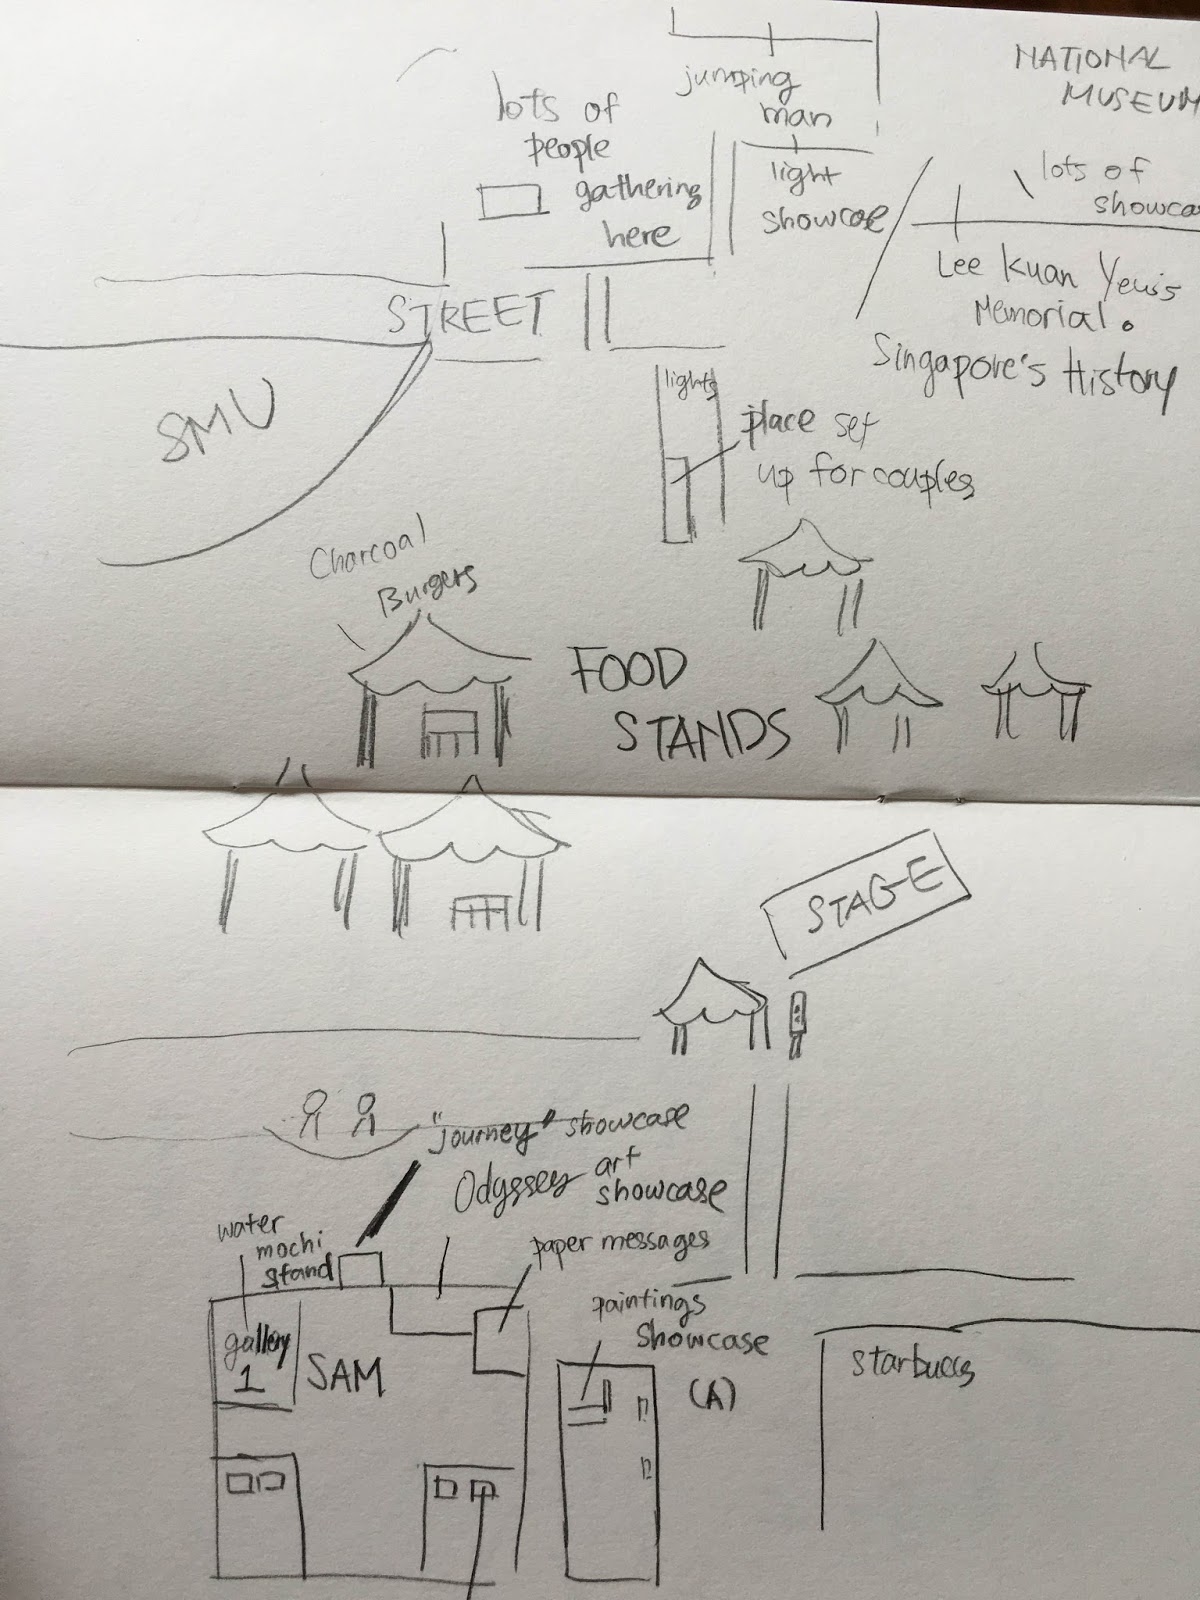 NATIONAL
MUSEUM
jumping
man
lots of
people
gathering
here
light
showcase
lots of
showca
Lee Kuan Yew's
Memorial.
Singapore's History
STREET
SMU
lights
place set
up for couples
Charcoal
Burgers
FOOD
STANDS
STAGE
"journey" showcase
Odyssey art
showcase
water
mochi
stand
paper messages
paintings
showcase
(A)
gallery
1
SAM
starbucks